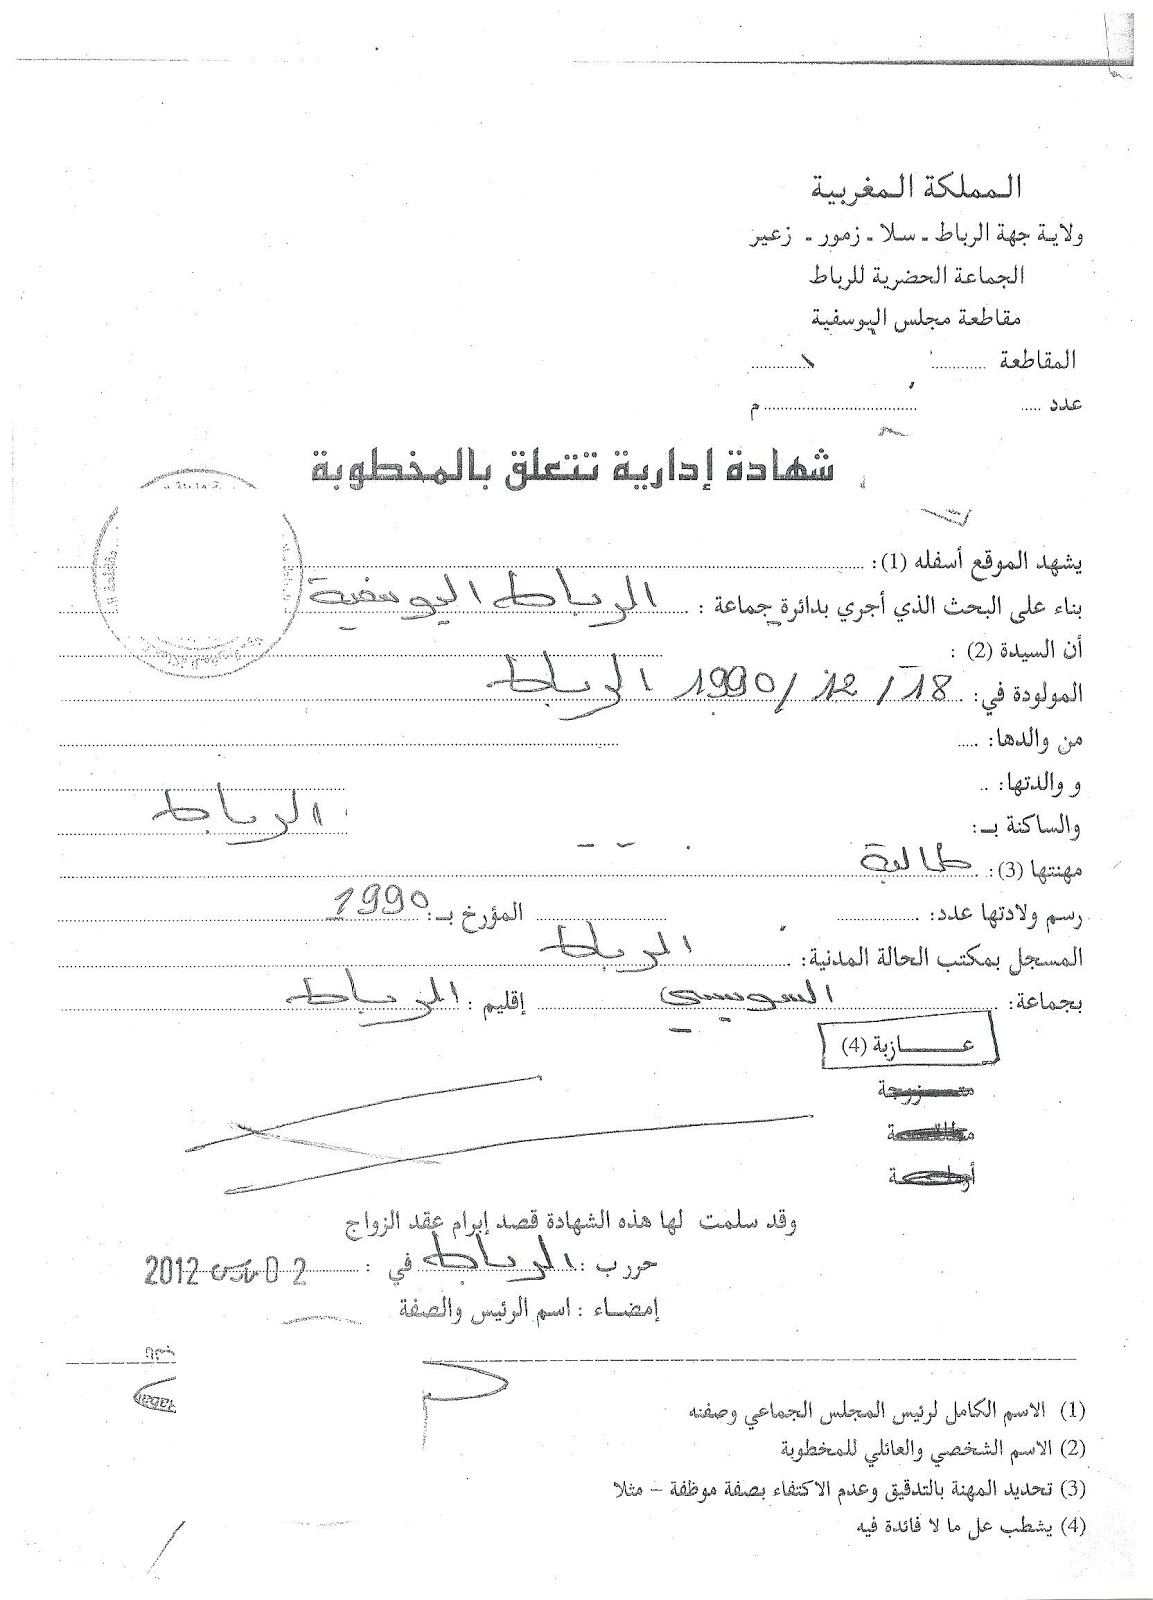 المملكة المغربية
ولاية جهة الرباط ـ سلا ـ زمور ـ زعير
الجماعة الحضرية للرباط
مقاطعة مجلس اليوسفية
المقاطعة ............ ............
عدد ..... ............ م
شهادة إدارية تتعلق بالمخطوبة
يشهد الموقع أسفله (1): ............
بناء على البحث الذي أجري بدائرة جماعة : الرباط اليوسفية
أن السيدة (2) : ............
المولودة في: 18 / 12 / 1990 الرباط
من والدها: ............
و والدتها: ............
والساكنة بـ: الرباط
مهنتها (3): طالبة
رسم ولادتها عدد: ............ المؤرخ بـ: 1990
المسجل بمكتب الحالة المدنية: الرباط
بجماعة: السويسي إقليم : الرباط
عـــازبة (4)
متـزوجة
مطلقـة
أرملـة
وقد سلمت لها هذه الشهادة قصد إبرام عقد الزواج
حرر ب : الرباط في : 02 مارس 2012
إمضـاء : اسم الرئيس والصفة
(1) الاسم الكامل لرئيس المجلس الجماعي وصفته
(2) الاسم الشخصي والعائلي للمخطوبة
(3) تحديد المهنة بالتدقيق وعدم الاكتفاء بصفة موظفة – مثلا
(4) يشطب عل ما لا فائدة فيه